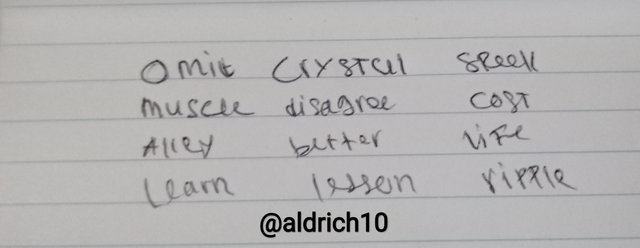 Omit Crystal Speak
muscle disagree cost
Alley better life
Learn lesson ripple
@aldrich10